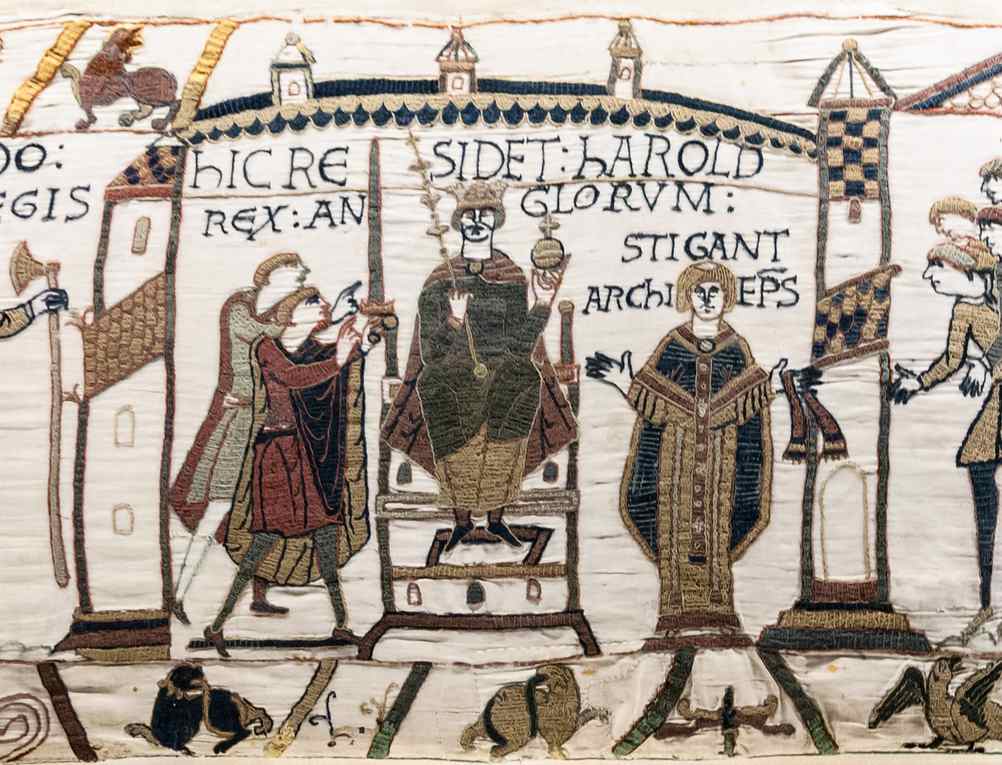 DO:
EGIS
hIC RE SIDET: hAROLD
REX: AN GLORVM:
STIGANT
ARChI EP̄S